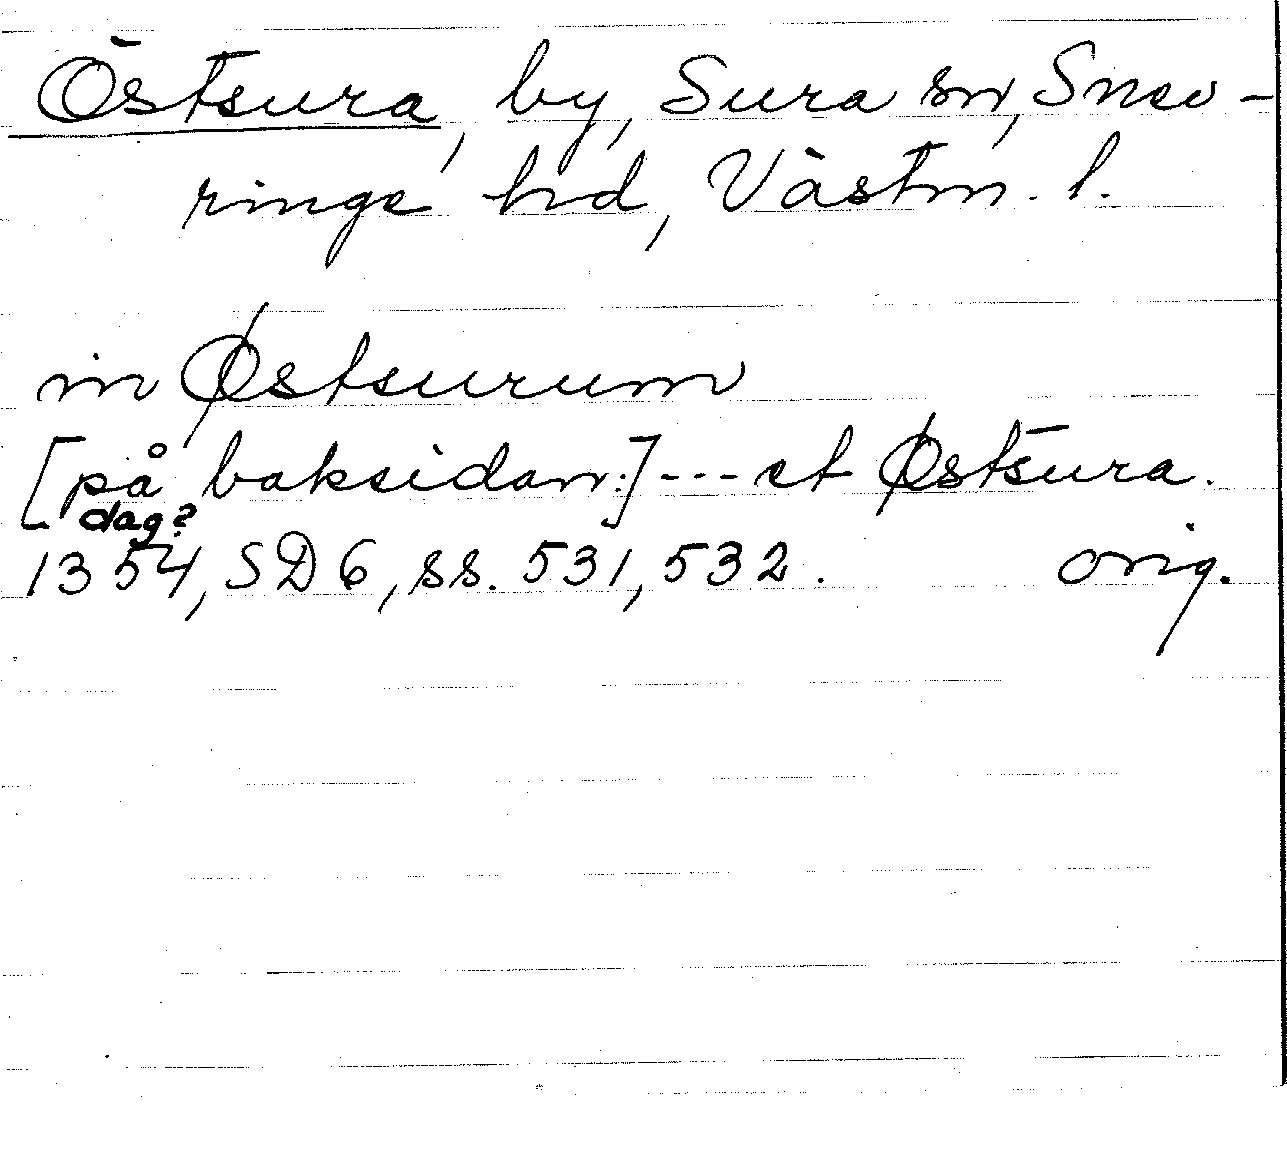 Östsura, by, Sura sn, Snev-
ringe hd, Västm. l.
in Østsurum
[på baksidan:] --- et Østsura.
dag?
1354, SD 6, ss. 531, 532. orig.